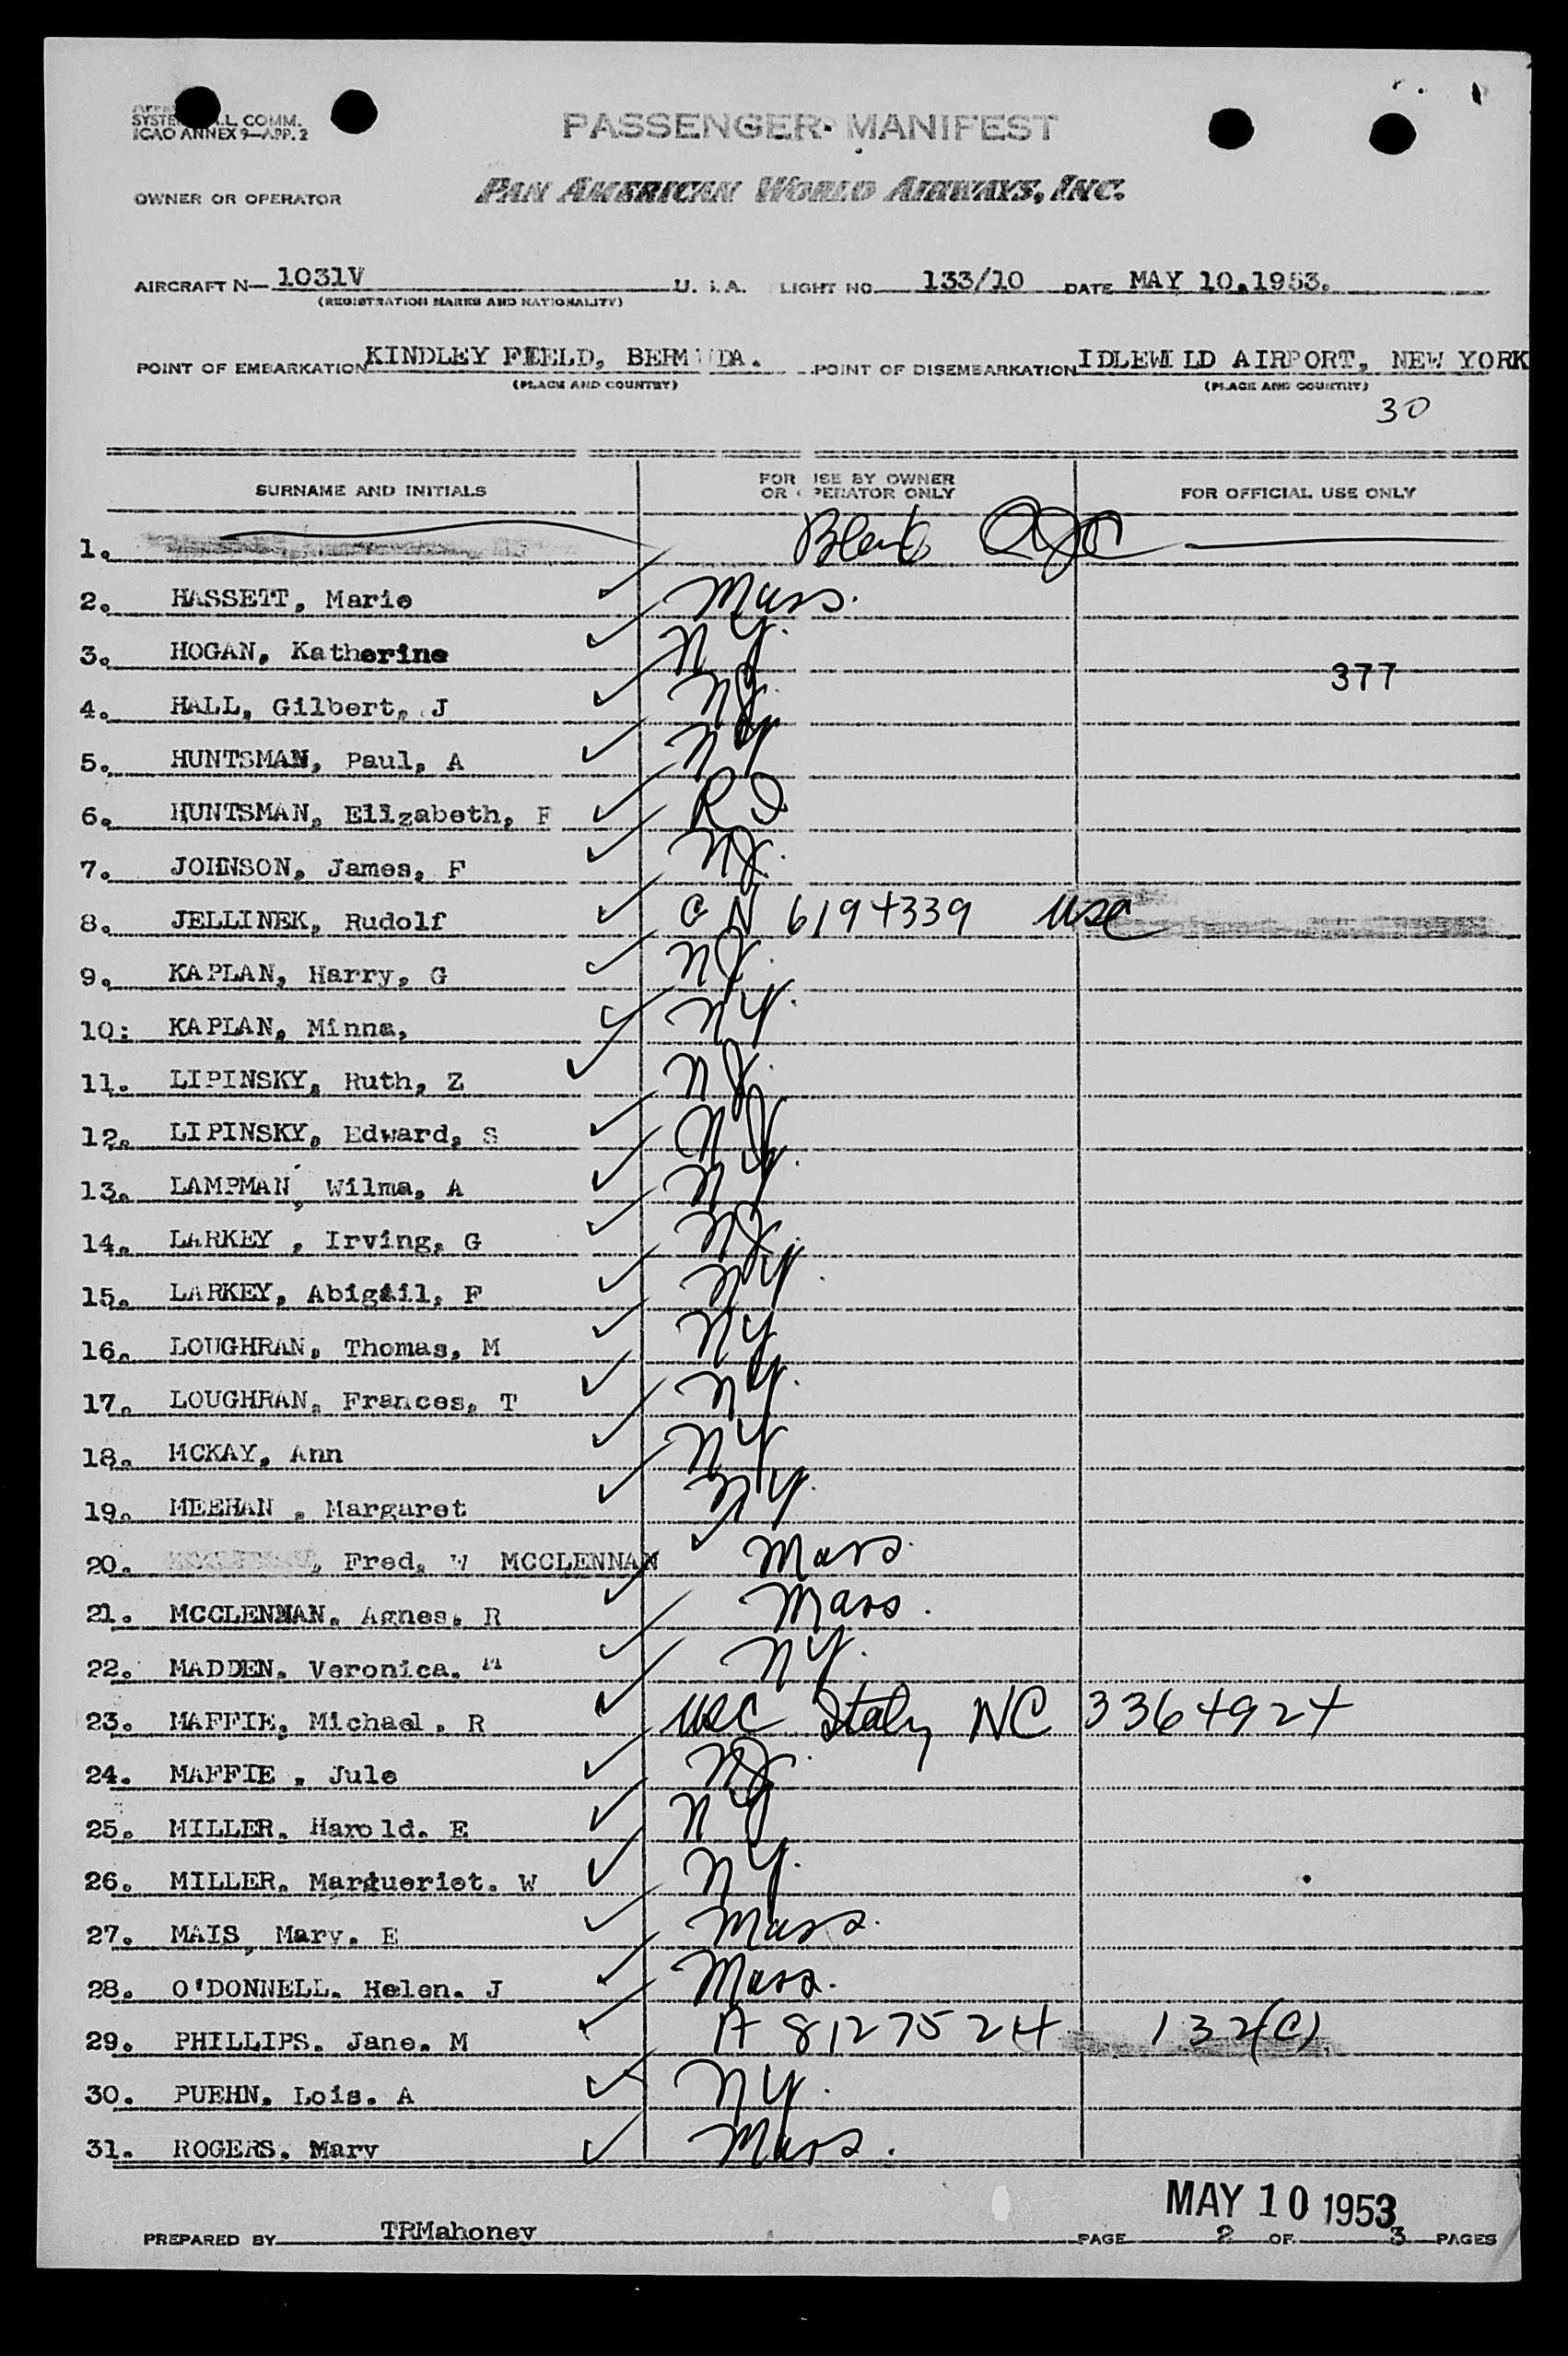 SYSTE L COMM.
ICAO ANNEX 9—APP. 2
PASSENGER MANIFEST
OWNER OR OPERATOR
PAN AMERICAN WORLD AIRWAYS, INC.
AIRCRAFT N— 1031V U. S.A. LIGHT NO. 133/10 DATE MAY 10.1953.
(REGISTRATION MARKS AND NATIONALITY)
POINT OF EMBARKATION KINDLEY FIELD, BERMUDA. POINT OF DISEMBARKATION IDLEWILD AIRPORT, NEW YORK
(PLACE AND COUNTRY) (PLACE AND COUNTRY)
30
SURNAME AND INITIALS FOR USE BY OWNER OR OPERATOR ONLY FOR OFFICIAL USE ONLY
1. Blank
2. HASSETT, Marie Mass.
3. HOGAN, Katherine NY.
377
4. HALL, Gilbert, J NJ.
5. HUNTSMAN, Paul, A NY
6. HUNTSMAN, Elizabeth, F RI
7. JOHNSON, James, F NJ.
8. JELLINEK, Rudolf C N 6194339 usc
9. KAPLAN, Harry, G NJ.
10: KAPLAN, Minna, NY.
11. LIPINSKY, Ruth, Z NJ.
12. LIPINSKY, Edward, S NJ
13. LAMPMAN, Wilma, A NY.
14. LARKEY , Irving, G NJ.
15. LARKEY, Abigail, F NY.
16. LOUGHRAN, Thomas, M NY
17. LOUGHRAN, Frances, T NY.
18. MCKAY, Ann NY
19. MEEHAN , Margaret NY.
20. , Fred, W MCCLENNAN Mass.
21. MCCLENNAN, Agnes, R Mass.
22. MADDEN, Veronica, M NY.
23. MAFFIE, Michael, R usc Italy NC 3364924
24. MAFFIE , Jule NJ.
25. MILLER, Harold, E NY
26. MILLER, Margueriet, W NY.
27. MAIS, Mary, E Mass.
28. O'DONNELL, Helen, J Mass.
29. PHILLIPS, Jane, M A 8127524 132(C)
30. PUEHN, Lois, A NY.
31. ROGERS, Mary Mass.
MAY 10 1953
PREPARED BY TRMahoney PAGE 2 OF 3 PAGES